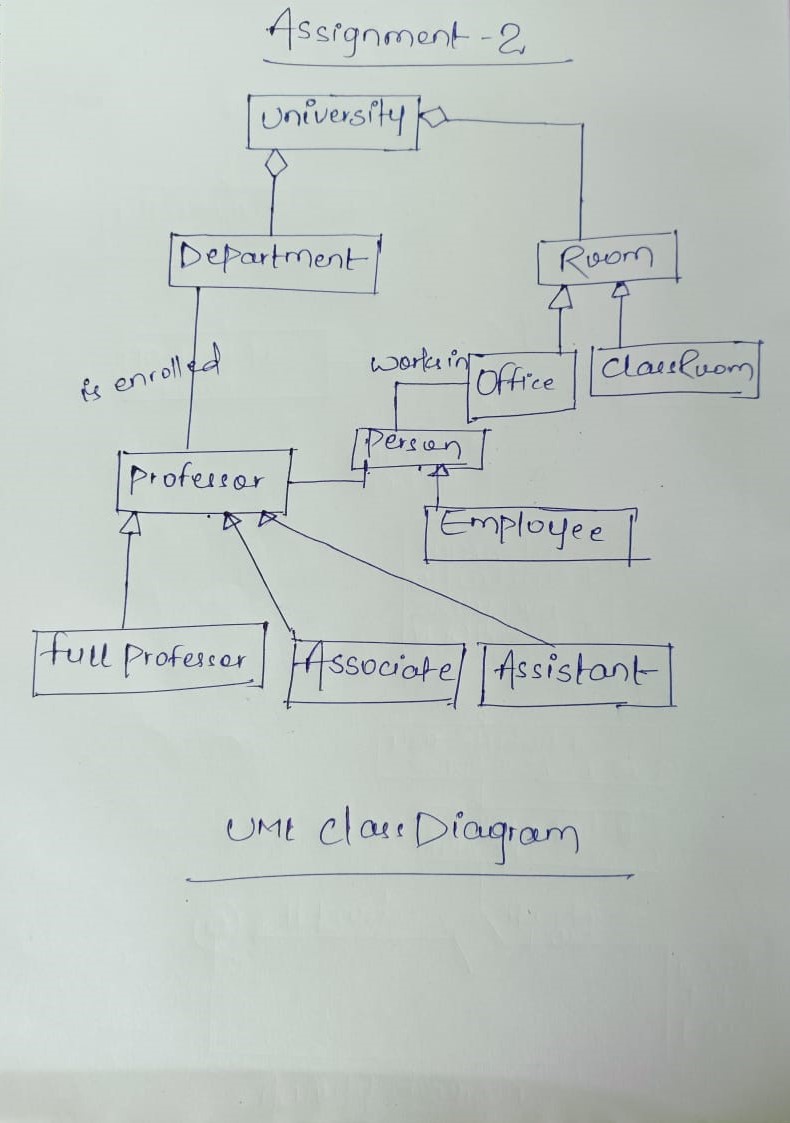 Assignment-2
University
Department
Room
is enrolled
works in
Office
ClassRoom
Person
Professor
Employee
full Professor
Associate
Assistant
UML Class Diagram